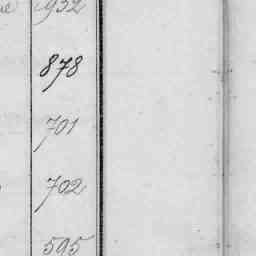 932
878
701
702
595